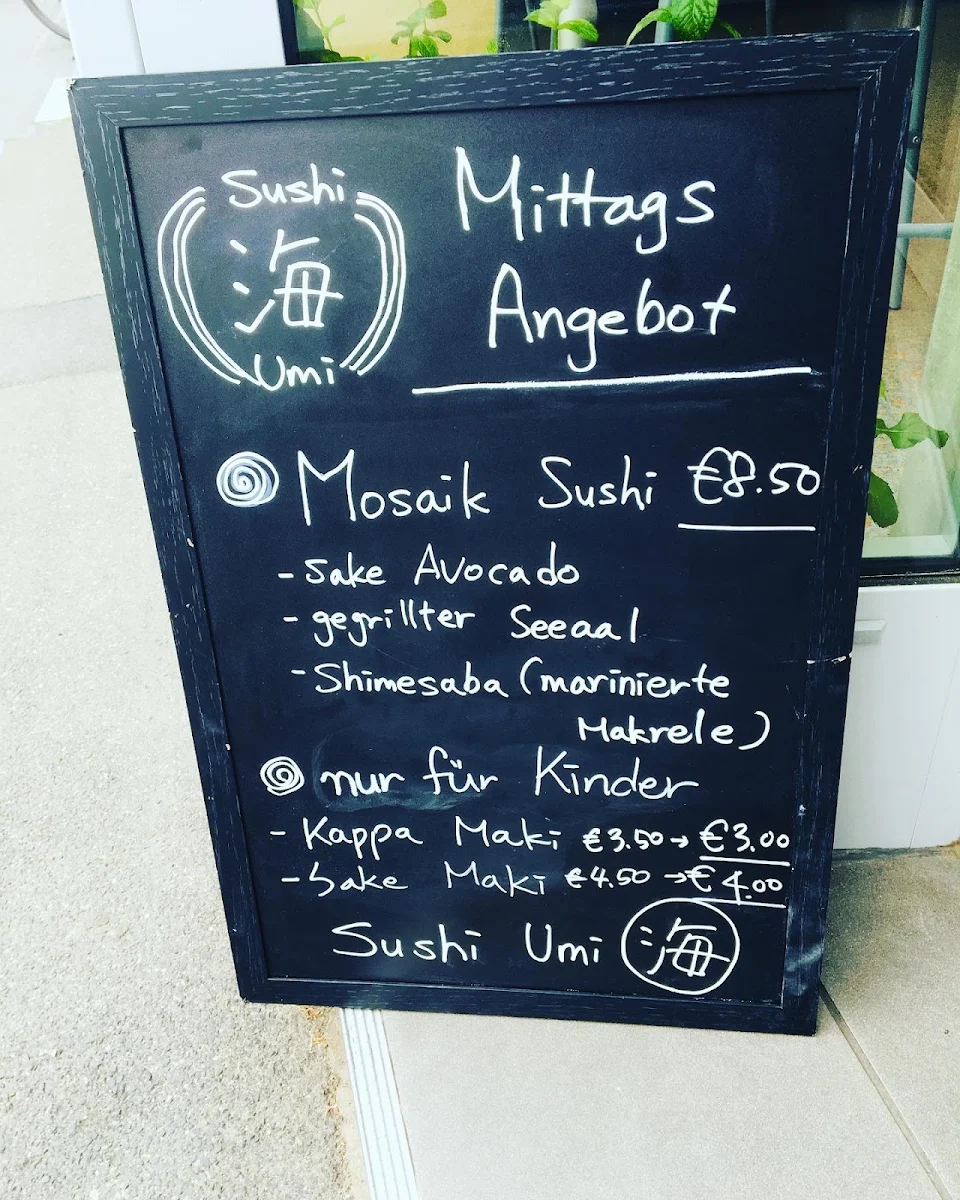 Sushi
海
Umi
Mittags
Angebot
Mosaik Sushi €8.50
- Sake Avocado
- gegrillter Seeaal
- Shimesaba (marinierte
Makrele)
nur für Kinder
- Kappa Maki €3.50 → €3.00
- Sake Maki €4.50 → €4.00
Sushi Umi 海